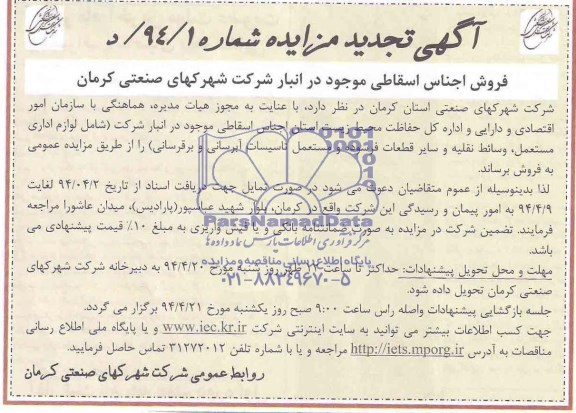 آگهی تجدید مزایده شماره ۹۴/۱/د
فروش اجناس اسقاطی موجود در انبار شرکت شهرکهای صنعتی کرمان
شرکت شهرکهای صنعتی استان کرمان در نظر دارد، با عنایت به مجوز هیات مدیره، هماهنگی با سازمان امور
اقتصادی و دارایی و اداره کل حفاظت محیط زیست استان اجناس اسقاطی موجود در انبار شرکت (شامل لوازم اداری
مستعمل، وسائط نقلیه و سایر قطعات فرسوده و مستعمل تاسیسات آبرسانی و برقرسانی) را از طریق مزایده عمومی
به فروش برساند.
لذا بدینوسیله از عموم متقاضیان دعوت می شود در صورت تمایل جهت دریافت اسناد از تاریخ ۹۴/۰۴/۲ لغایت
۹۴/۴/۹ به امور پیمان و رسیدگی این شرکت واقع در کرمان، بلوار شهید عباسپور(پارادیس)، میدان عاشورا مراجعه
فرمایند. تضمین شرکت در مزایده به صورت ضمانتنامه بانکی و یا فیش واریزی به مبلغ ۱۰٪ قیمت پیشنهادی می
باشد.
مهلت و محل تحویل پیشنهادات: حداکثر تا ساعت ۱۲ ظهر روز شنبه مورخ ۹۴/۴/۲۰ به دبیرخانه شرکت شهرکهای
صنعتی کرمان تحویل داده شود.
جلسه بازگشایی پیشنهادات واصله راس ساعت ۹:۰۰ صبح روز یکشنبه مورخ ۹۴/۴/۲۱ برگزار می گردد.
جهت کسب اطلاعات بیشتر می توانید به سایت اینترنتی شرکت www.iec.kr.ir و یا پایگاه ملی اطلاع رسانی
مناقصات به آدرس http://iets.mporg.ir مراجعه و یا با شماره تلفن ۳۱۲۷۲۰۱۲ تماس حاصل فرمایید.
روابط عمومی شرکت شهرکهای صنعتی کرمان
ParsNamadData
پایگاه اطلاع رسانی مناقصه و مزایده
۰۲۱-۸۸۳۴۹۶۷۰-۵